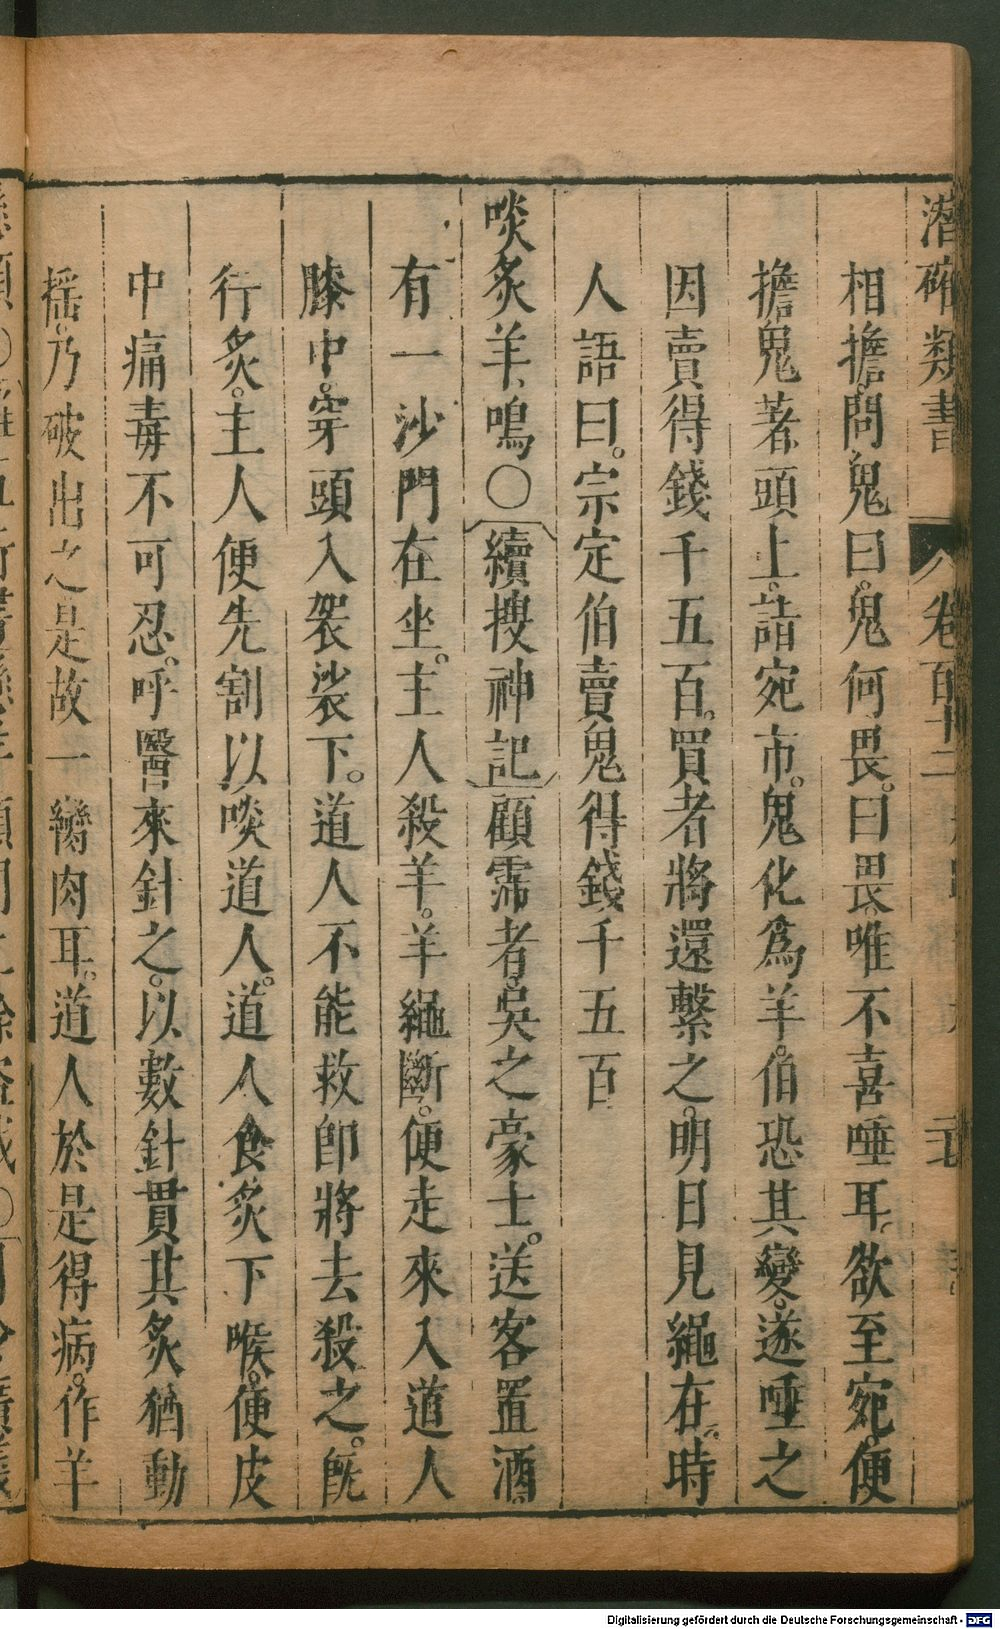 潛確類書 卷百十二
相擔。問鬼曰。鬼何畏。曰畏。唯不喜唾耳。欲至宛。便
擔鬼著頭上。詣宛市。鬼化爲羊。伯恐其變。遂唾之
因賣得錢千五百。買者將還繫之。明日見繩在。時
人語曰。宗定伯賣鬼得錢千五百
啖炙羊鳴〇續搜神記顧霈者。吳之豪士。送客置酒。
有一沙門在坐。主人殺羊。羊繩斷。便走來入道人
膝中。穿頭入袈裟下。道人不能救即將去殺之。旣
行炙。主人便先割以啖道人。道人食炙下喉。便皮
中痛毒不可忍。呼醫來針之。以數針貫其炙猶動
搖。乃破出之是故一臠肉耳。道人於是得病。作羊
Digitalisierung gefördert durch die Deutsche Forschungsgemeinschaft - DFG